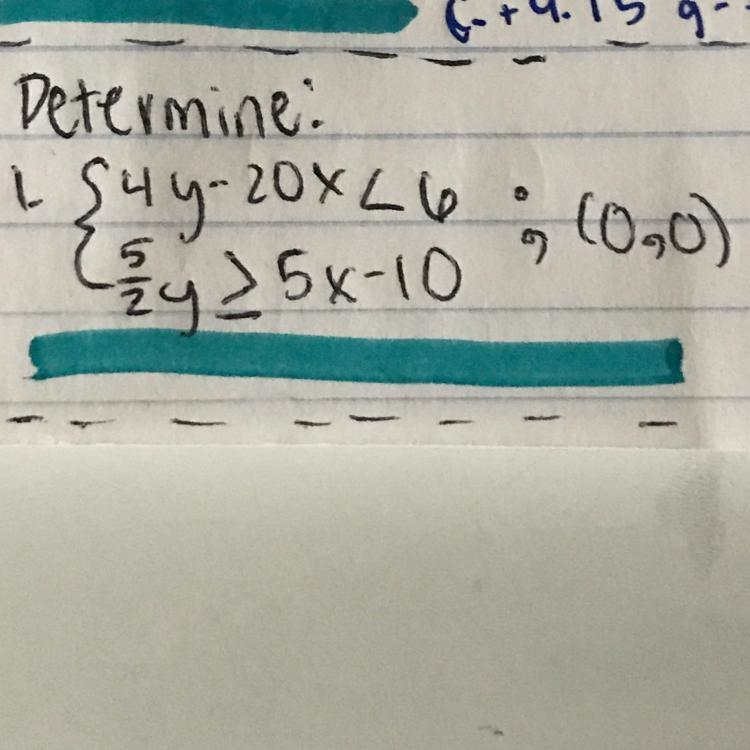 Determine:
1. { 4y - 20x < 6 ; (0,0)
5/2 y ≥ 5x - 10